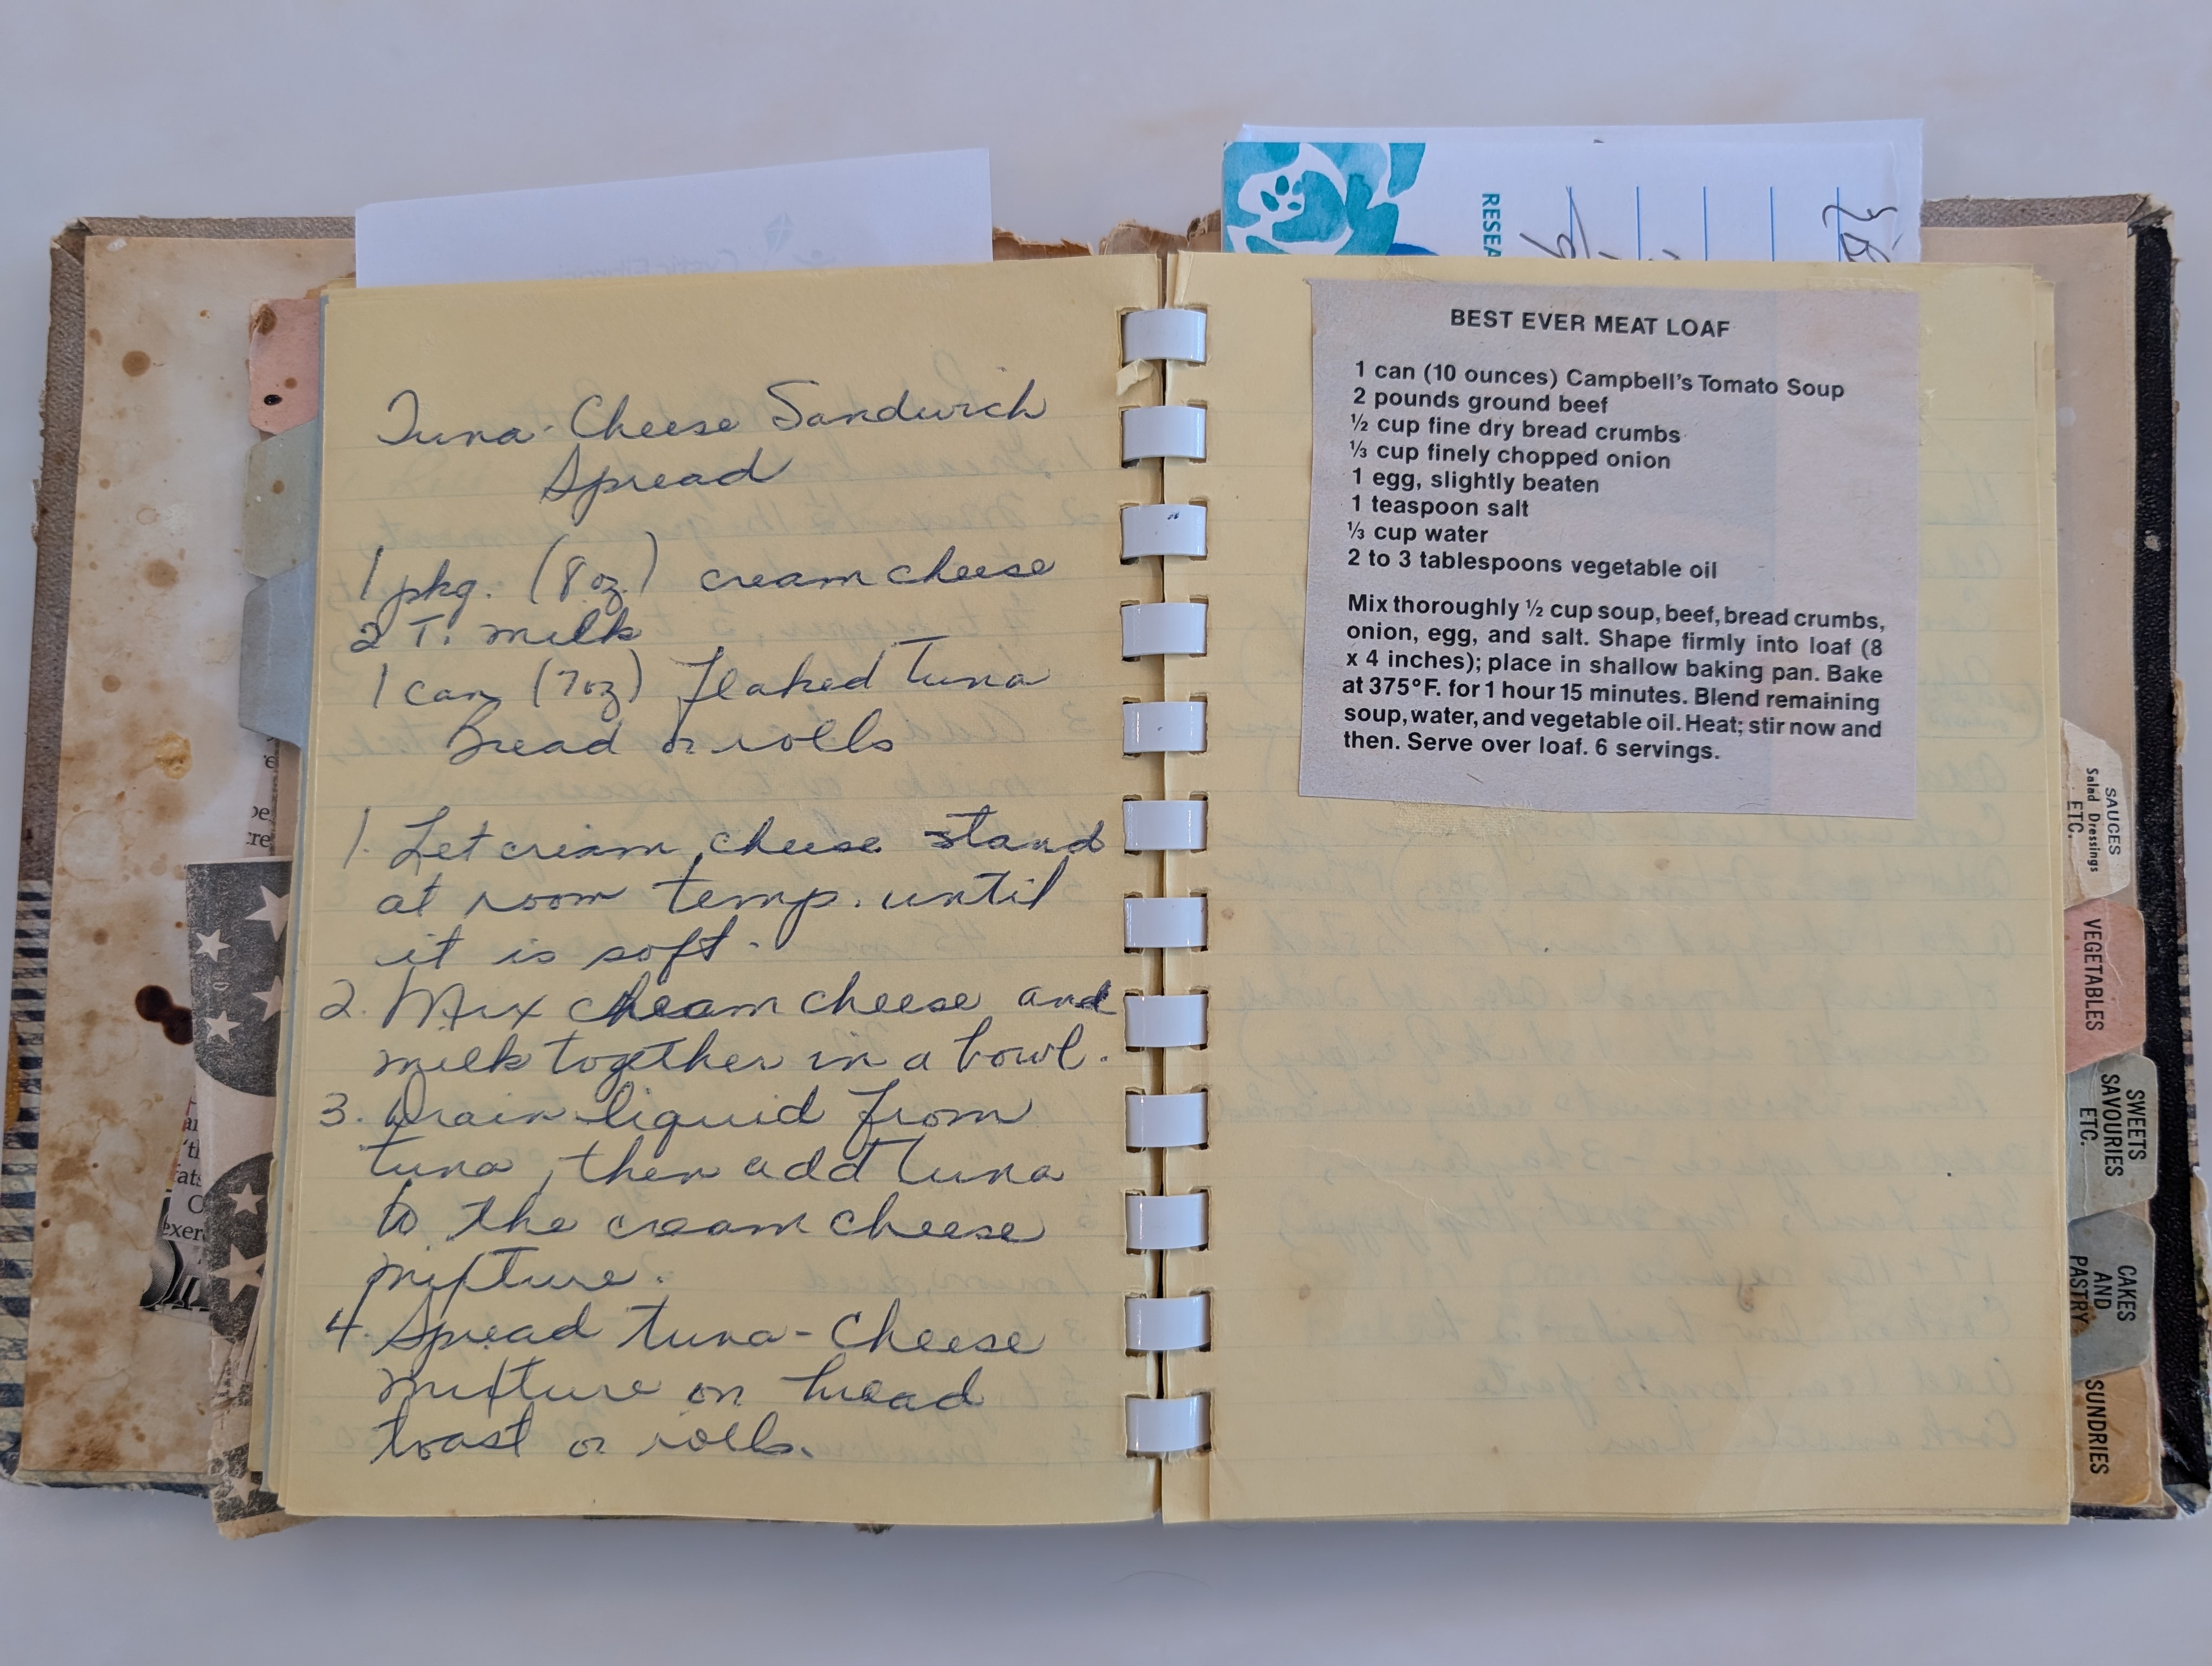 Tuna-Cheese Sandwich
Spread
1 pkg. (8 oz.) cream cheese
2 T. milk
1 can (7 oz) flaked tuna
Bread or rolls
1. Let cream cheese stand
at room temp. until
it is soft.
2. Mix cream cheese and
milk together in a bowl.
3. Drain liquid from
tuna, then add tuna
to the cream cheese
mixture.
4. Spread tuna-cheese
mixture on bread
toast or rolls.
RESEA
BEST EVER MEAT LOAF
1 can (10 ounces) Campbell's Tomato Soup
2 pounds ground beef
½ cup fine dry bread crumbs
⅓ cup finely chopped onion
1 egg, slightly beaten
1 teaspoon salt
⅓ cup water
2 to 3 tablespoons vegetable oil
Mix thoroughly ½ cup soup, beef, bread crumbs,
onion, egg, and salt. Shape firmly into loaf (8
x 4 inches); place in shallow baking pan. Bake
at 375°F. for 1 hour 15 minutes. Blend remaining
soup, water, and vegetable oil. Heat; stir now and
then. Serve over loaf. 6 servings.
SAUCES
Salad Dressings
ETC.
VEGETABLES
SWEETS
SAVOURIES
ETC.
CAKES
AND
PASTRY
SUNDRIES